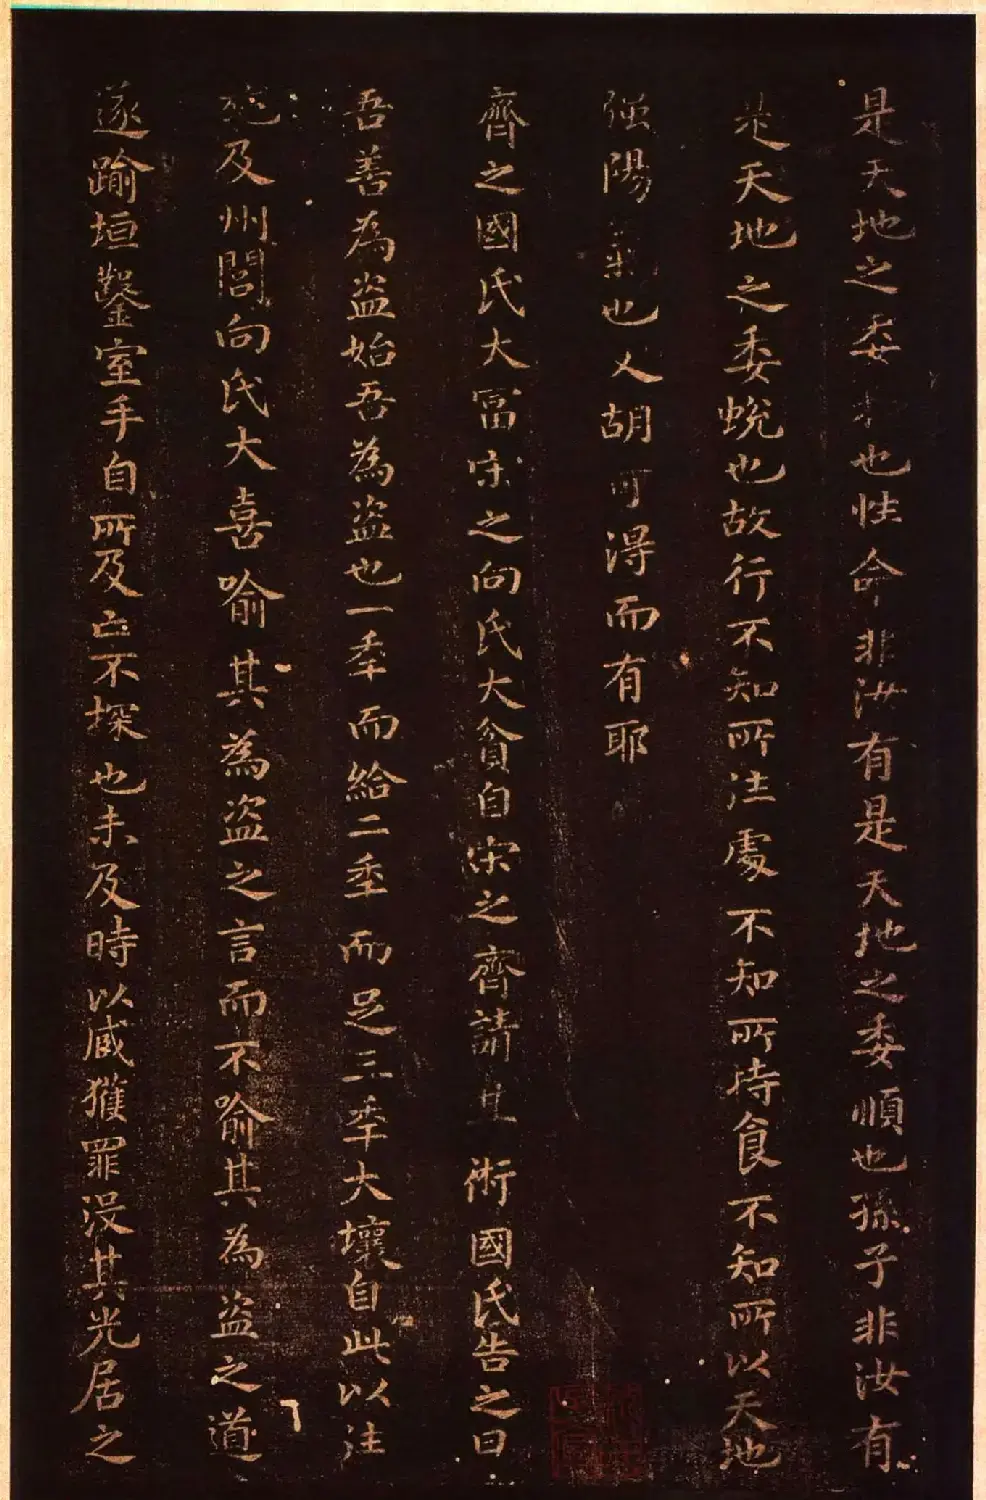 是天地之委和也性命非汝有是天地之委順也孫子非汝有
是天地之委蛻也故行不知所往處不知所持食不知所以天地
強陽氣也又胡可得而有耶
齊之國氏大富宋之向氏大貧自宋之齊請其術國氏告之曰
吾善為盜始吾為盜也一季而給二季而足三季大壤自此以往
施及州閭向氏大喜喻其為盜之言而不喻其為盜之道
遂踰垣鑿室手目所及亡不探也未及時以臧獲罪沒其先居之